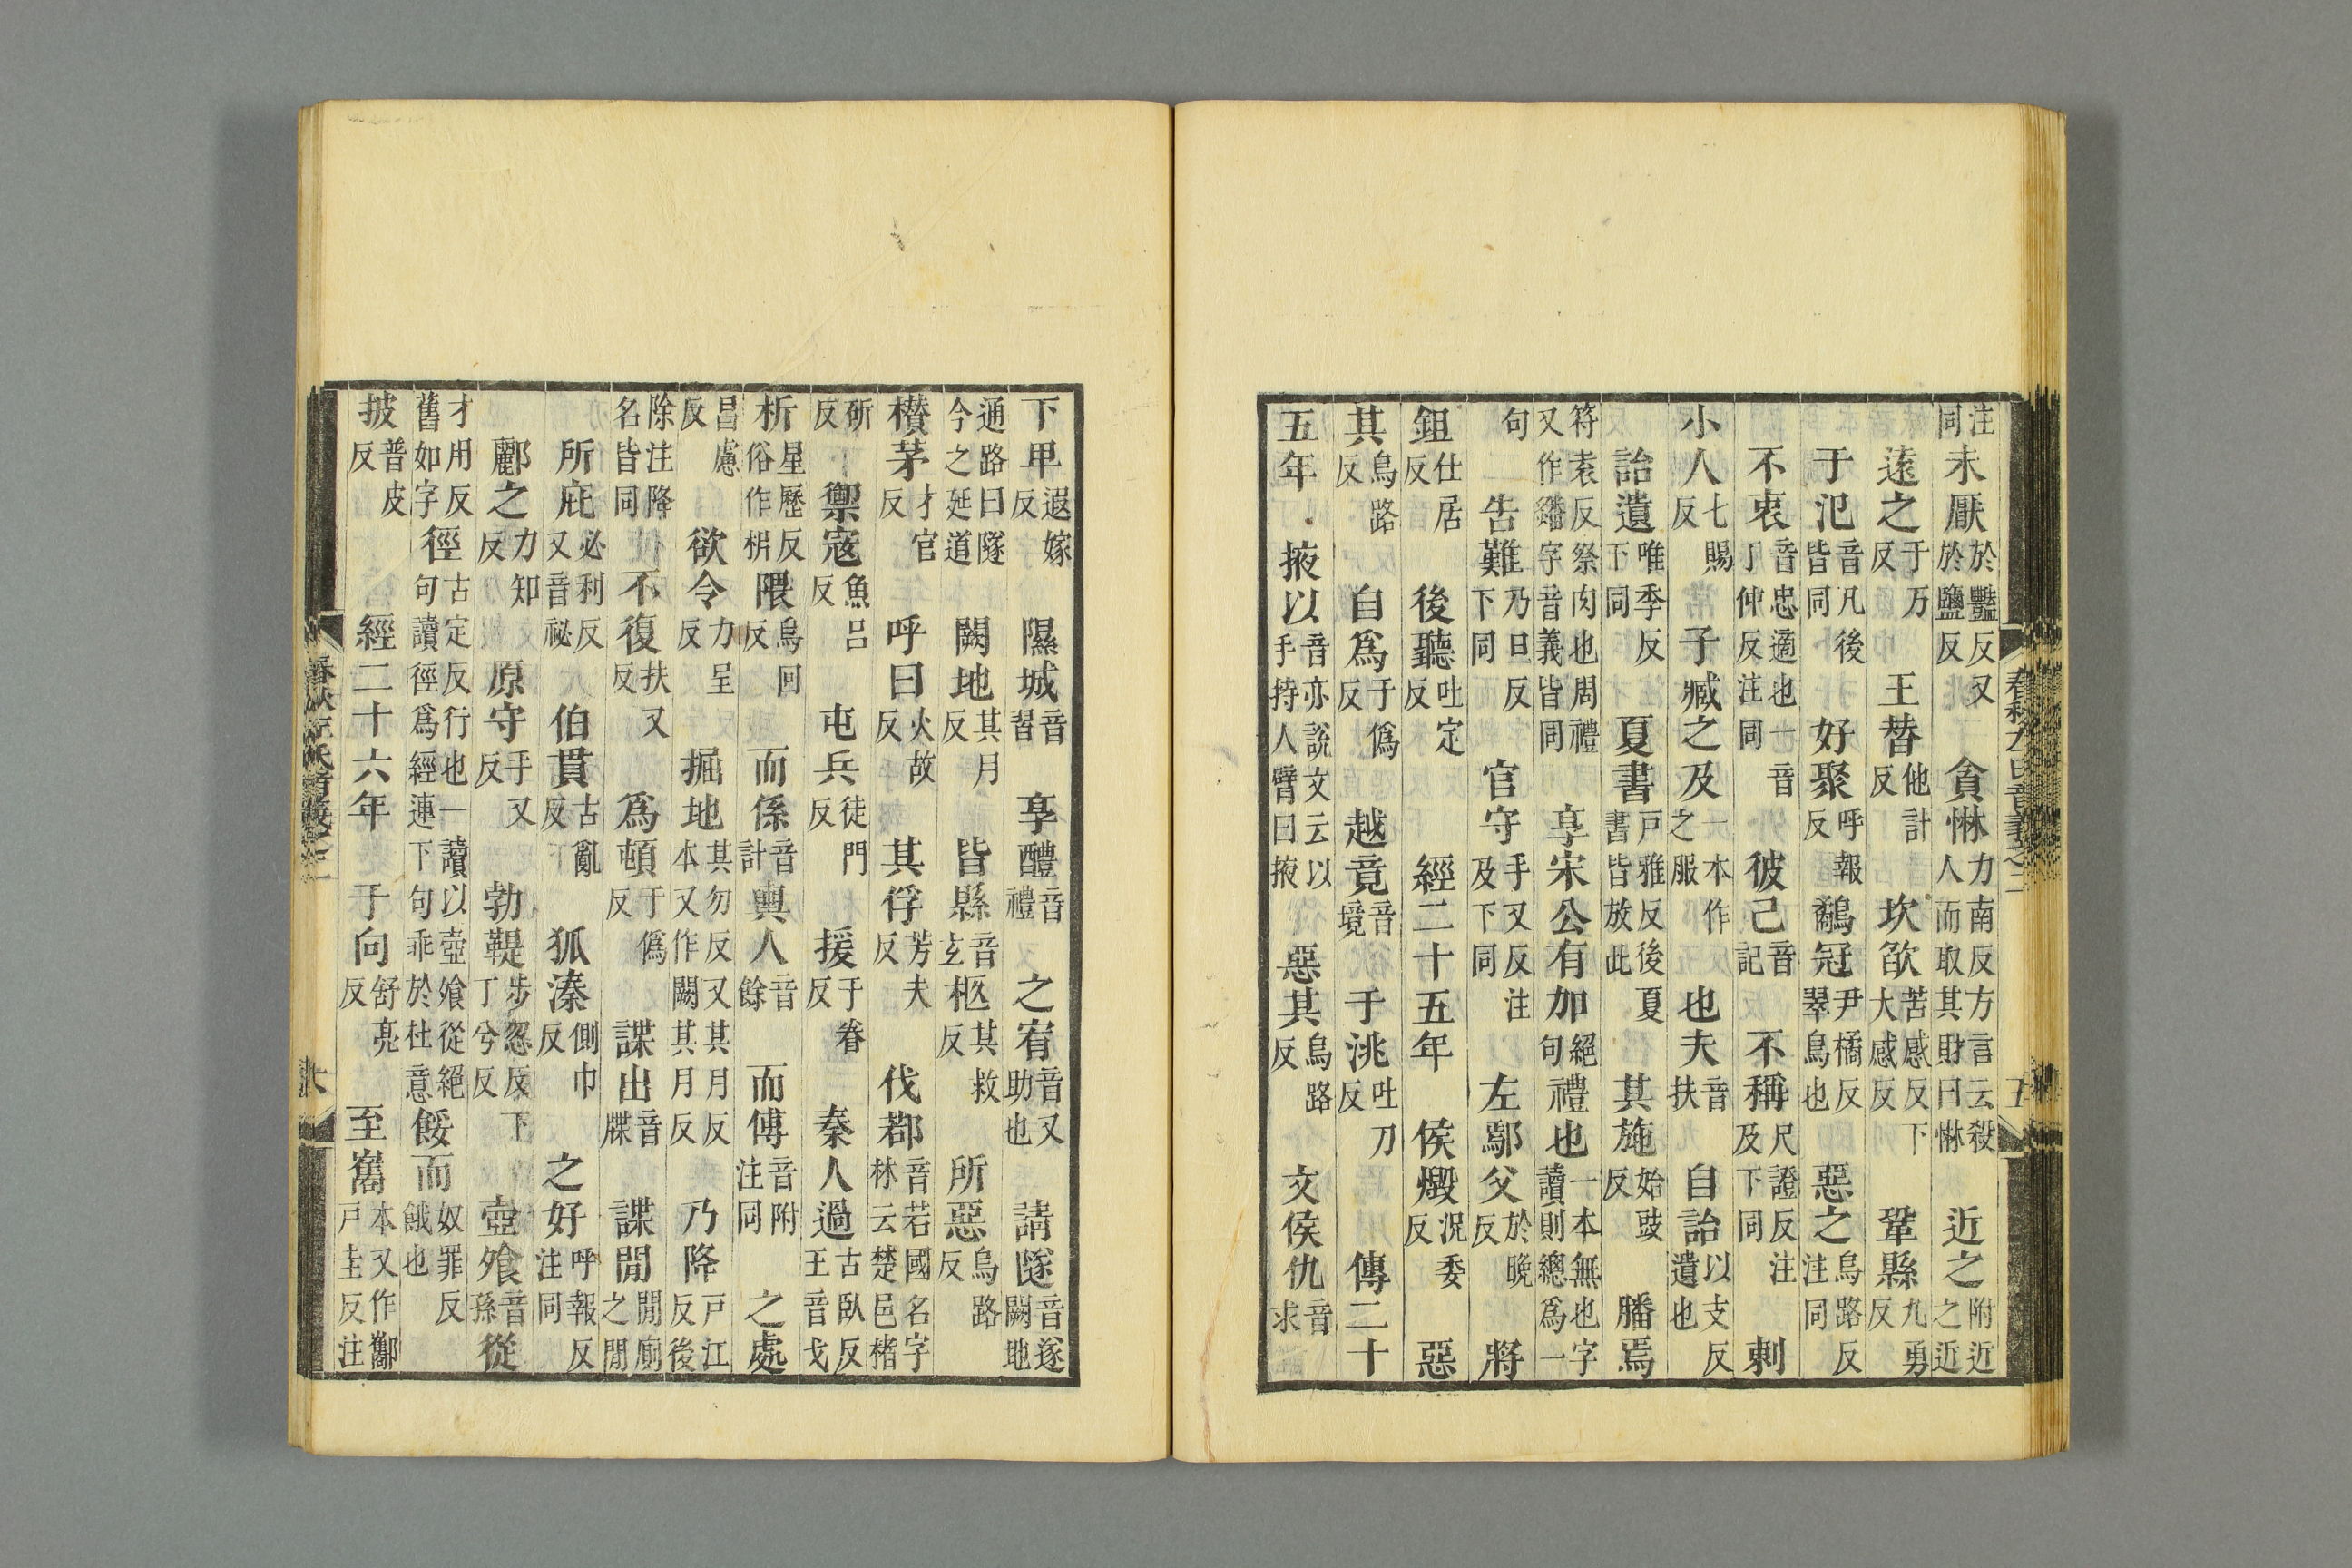 春秋左氏音義之二　五
注同未厭於豔反又於鹽反　貪惏力南反方言云殺人而取其財曰惏　近之附近之近
遠之于万反　王替他計反　坎欿苦感反下大感反　鞏縣九勇反
于氾音凡後皆同　好聚呼報反　鷸冠尹橘反翠鳥也　惡之烏路反注同
不衷音忠適也一音丁仲反注同　彼己音記　不稱尺證反注及下同　刺
小人七賜反　子臧之及一本作之服　也夫音扶　自詒以支反遺也
詒遺唯季反下同　夏書戶雅反後夏書皆放此　其施始豉反　膰焉
符袁反祭肉也周禮又作鐇字音義皆同　享宋公有加絕句　禮也一本無也字讀則總爲一
句　告難乃旦反下同　官守手又反注及下同　左鄢父於晚反　將
鉏仕居反　後聽吐定反　經二十五年　侯燬況委反　惡
其烏路反　自爲于僞反　越竟音境　于洮吐刀反　傳二十
五年　掖以音亦說文云以手持人臂曰掖　惡其烏路反　文侯仇音求
下甲遐嫁反　隰城音習　享醴音禮　之宥音又助也　請隧音遂闕地
通路曰隧今之延道　闕地其月反　皆縣音玄　柩其救反　所惡烏路反
欑茅才官反　呼曰火故反　其俘芳夫反　伐鄀音若國名字林云楚邑楮
斫反　禦寇魚呂反　屯兵徒門反　援于眷反　秦人過古臥反王音戈
析星歷反俗作枂　隈烏回反　而係音計　輿人音餘　而傅音附注同　之處
昌慮反　欲令力呈反　掘地其勿反又其月反本又作闕其月反　乃降戶江反後
除注降名皆同　不復扶又反　爲頓于僞反　諜出音牒　諜閒閒廁之閒
所庇必利反又音祕　伯貫古亂反　狐溱側巾反　之好呼報反注同
酈之力知反　原守手又反　勃鞮步忽反下丁兮反　壺飧音孫　從
才用反舊如字　徑古定反行也一讀以壺飧從絕句讀徑爲經連下句乖於杜意　餒而奴罪反餓也
披普皮反　經二十六年　于向舒亮反　至巂本又作酅戶圭反注
春秋左氏音義之二　六